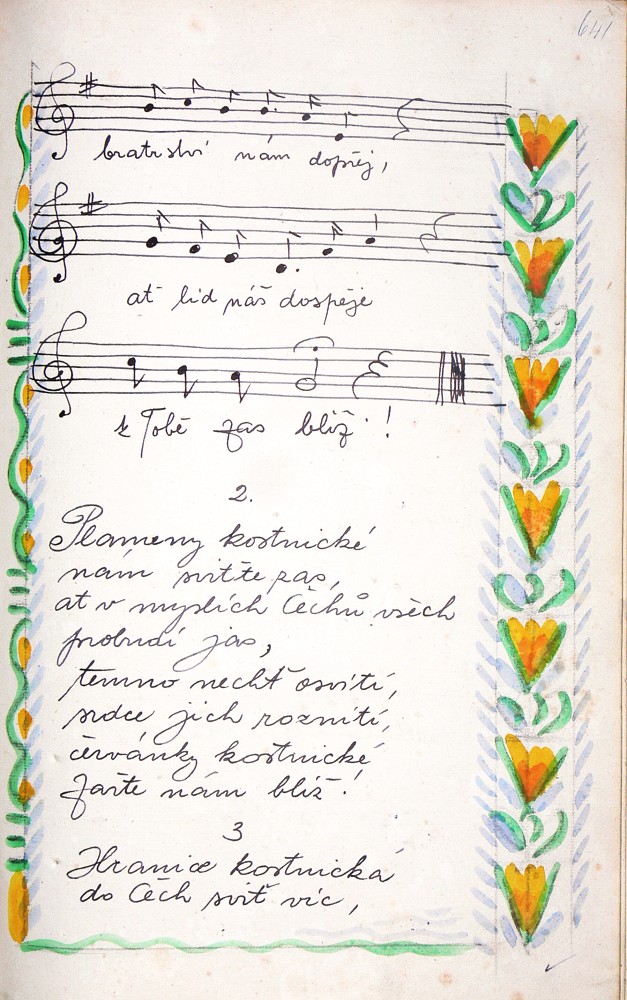 641
bratrství nám dopřej,
ať lid náš dospěje
k Tobě zas blíž!
2.
Plameny kostnické
nám sviťte zas,
ať v myslích Čechů všech
probudí jas,
temno nechť osvítí,
srdce jich roznítí,
červánky kostnické
zařte nám blíž!
3
Hranice kostnická
do Čech sviť víc,